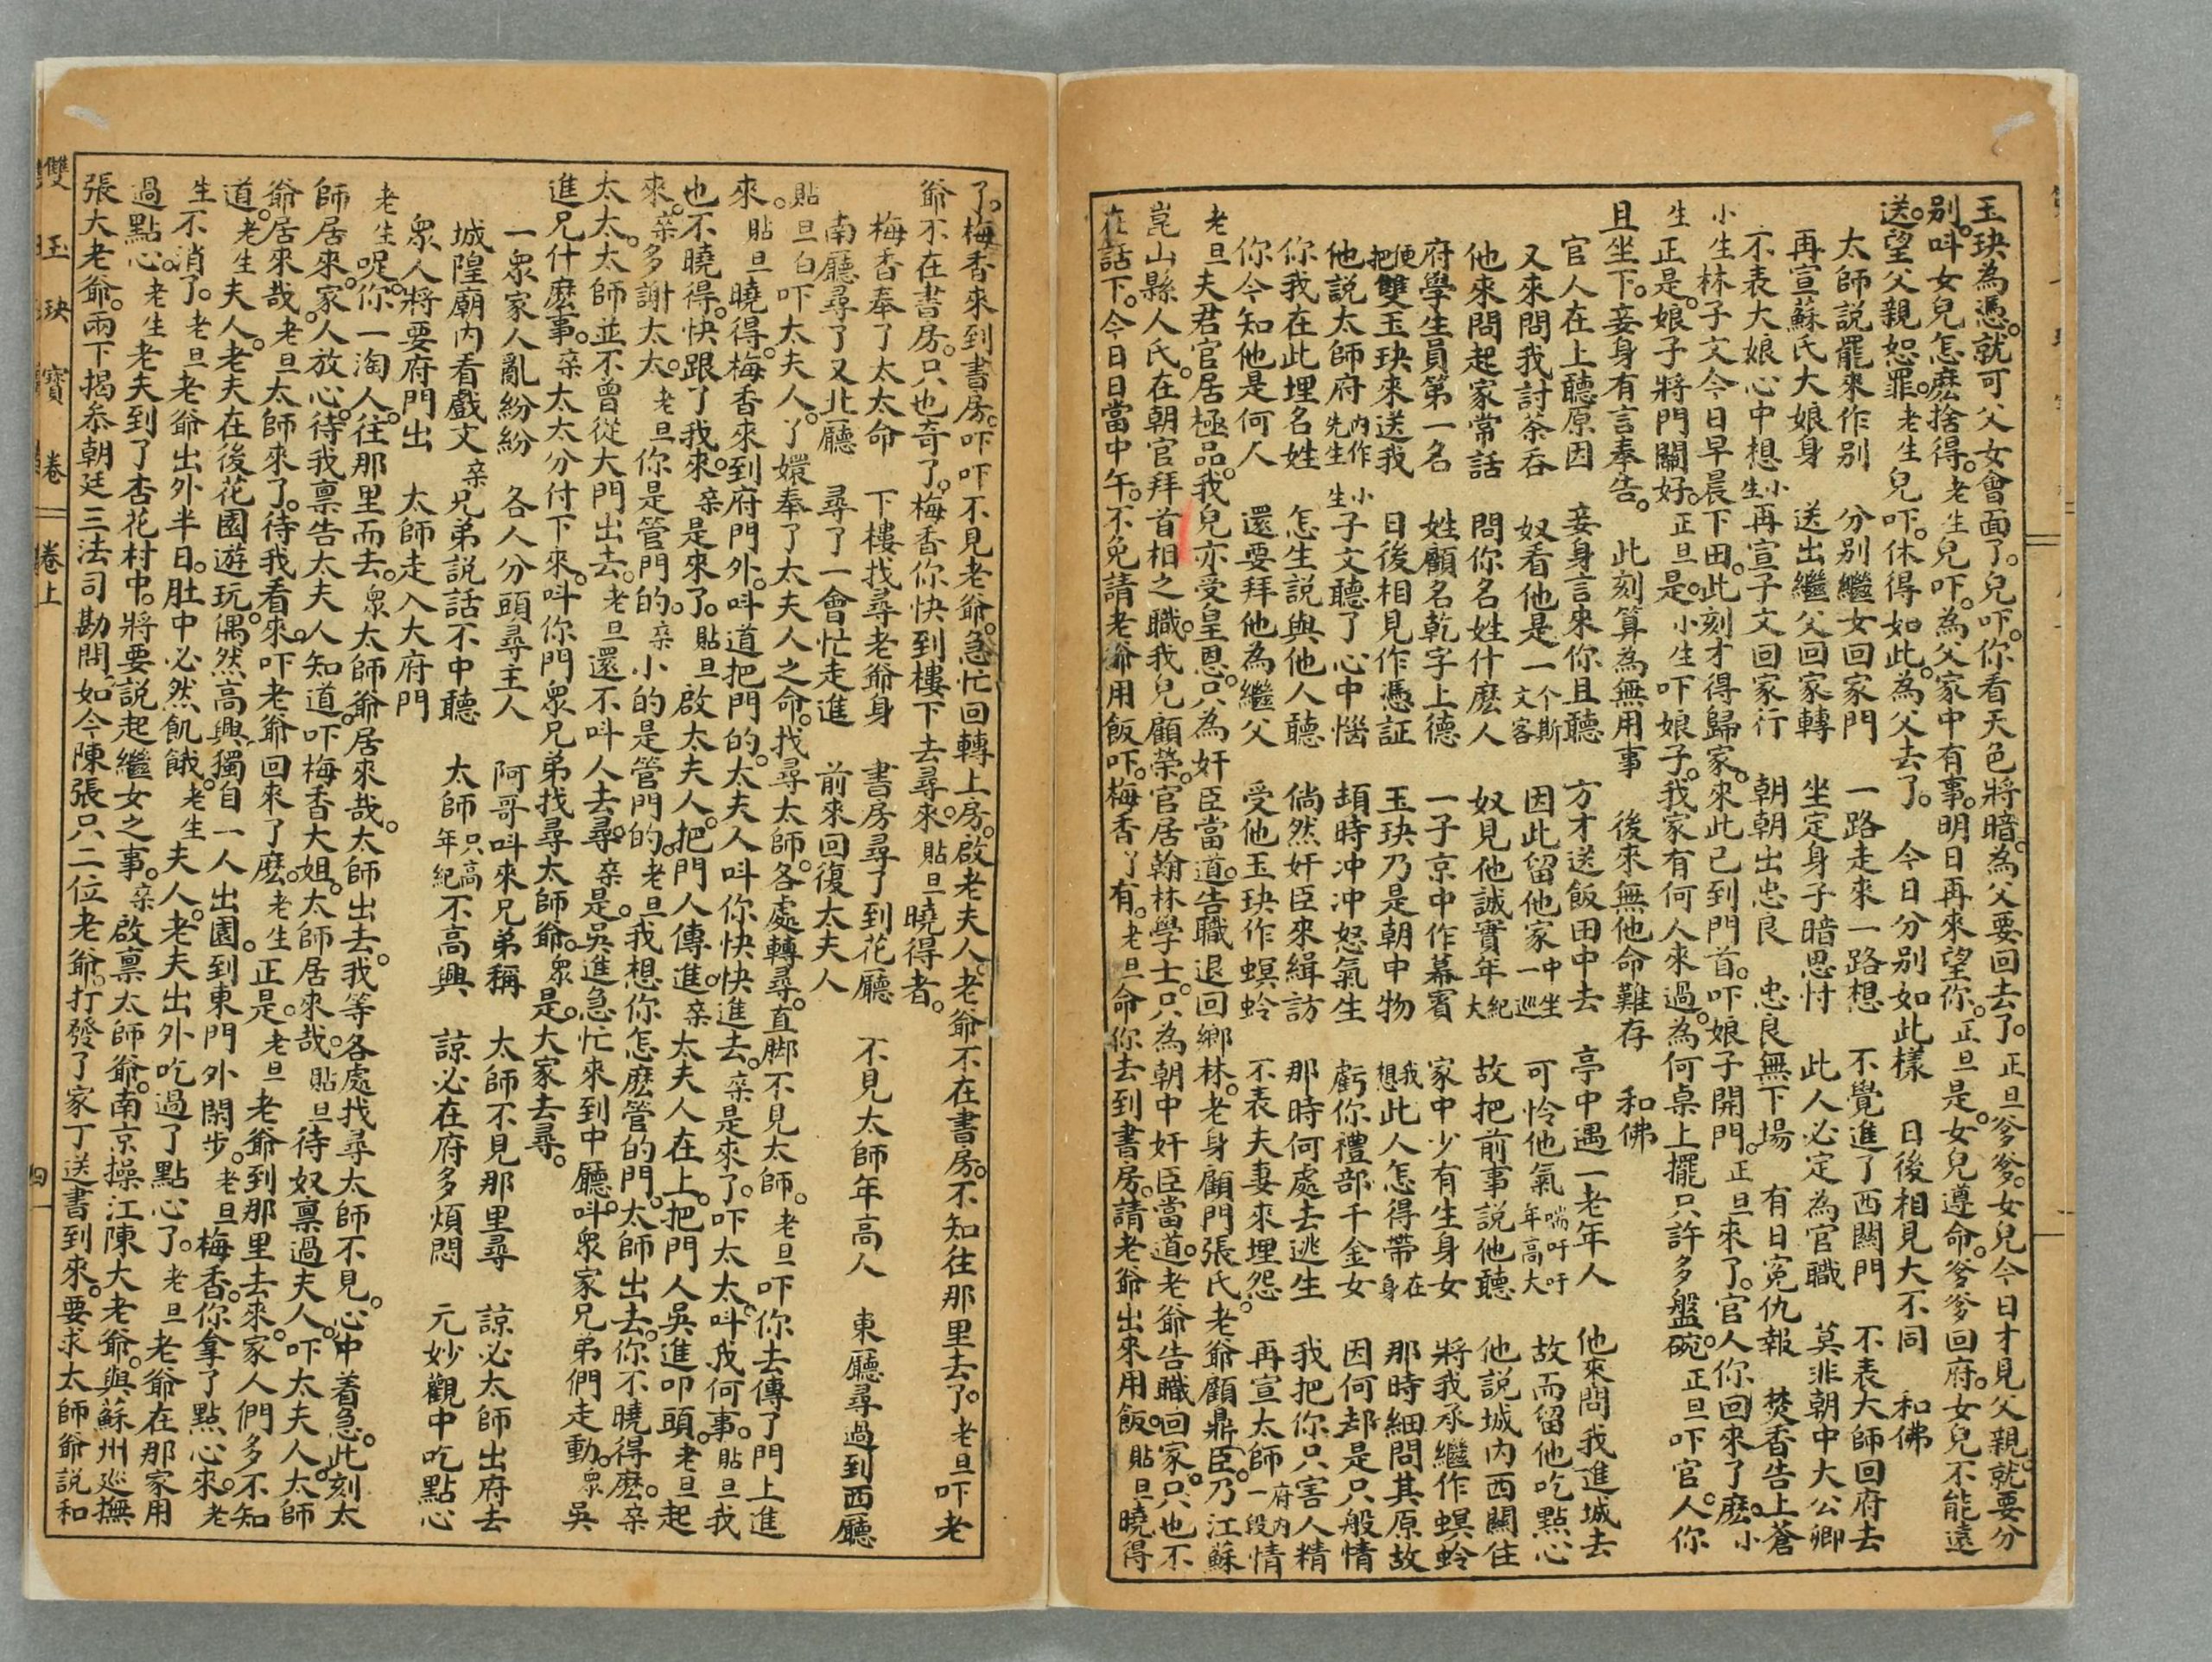 玉玦為憑。就可父女會面了。兒吓。你看天色將暗。為父要回去了。正旦爹爹。女兒今日才見父親。就要分
别。呌女兒怎麽捨得。老生兒吓。為父家中有事。明日再來望你。正旦是。女兒遵命。爹爹回府。女兒不能遠
送。望父親恕罪。老生兒吓。休得如此。為父去了。 今日分别如此樣 日後相見大不同 和佛
太師説罷來作别 分别繼女回家門 一路走來一路想 不覺進了西關門 不表大師回府去
再宣蘇氏大娘身 送出繼父回家轉 坐定身子暗思忖 此人必定為官職 莫非朝中大公卿
不表大娘心中想 小生再宣子文回家行 朝朝出忠良 忠良無下場 有日寃仇報 焚香告上蒼
小生林子文今日早晨下田。此刻才得歸家。來此已到門首。吓娘子開門。正旦來了。官人你回來了麽。小
生正是。娘子將門關好。正旦是。小生吓娘子。我家有何人來過。為何桌上擺只許多盤碗。正旦吓官人你
且坐下。妾身有言奉告。 此刻算為無用事 後來無他命難存 和佛
官人在上聽原因 妾身言來你且聽 方才送飯田中去 亭中遇一老年人 他來問我進城去
又來問我討茶吞 奴看他是一个斯文客 因此留他家中坐一巡 可怜他氣喘吁吁年高大 故而留他吃點心
他來問起家常話 問你名姓什麽人 奴見他誠實年紀大 故把前事説他聽 他説城内西關住
府學生員第一名 姓顧名乾字上德 一子京中作幕賓 家中少有生身女 將我承繼作螟蛉
便把雙玉玦來送我 日後相見作憑証 玉玦乃是朝中物 我想此人怎得帶在身 那時細問其原故
他説太師府内作先生 小生子文聽了心中惱 頓時冲冲怒氣生 虧你禮部千金女 因何却是只般情
你我在此埋名姓 怎生説與他人聽 倘然奸臣來緝訪 那時何處去逃生 我把你只害人精
你今知他是何人 還要拜他為繼父 受他玉玦作螟蛉 不表夫妻來埋怨 再宣太師府内一段情
老旦夫君官居極品。我兒亦受皇恩。只為奸臣當道。告職退回鄉林。老身顧門張氏。老爺顧鼎臣。乃江蘇
崑山縣人氏。在朝官拜首相之職。我兒顧榮。官居翰林學士。只為朝中奸臣當道。老爺告職。回家。只也不
在話下。今日日當中午。不免請老爺用飯吓。梅香。丫有。老旦命你去到書房。請老爺出來用飯。貼旦曉得
了。梅香來到書房。吓吓不見老爺。急忙回轉上房。啟老夫人。老爺不在書房。不知往那里去了。老旦吓老
爺不在書房。只也奇了。梅香你快到樓下去尋來。貼旦曉得者。
梅香奉了太太命 下樓找尋老爺身 書房尋了到花廳 不見太師年高人 東廳尋過到西廳
南廳尋了又北廳 尋了一會忙走進 前來回復太夫人
貼旦白吓太夫人。丫嬛奉了太夫人之命。找尋太師。各處轉尋。直脚不見太師。老旦吓你去傳了門上進
來。貼旦曉得。梅香來到府門外。呌道把門的。太夫人呌你快快進去。亲是來了。吓太太。呌我何事。貼旦我
也不曉得。快跟了我來。亲是來了。貼旦啟太夫人。把門人傳進。亲太夫人在上。把門人吳進叩頭。老旦起
來。亲多謝太太。老旦你是管門的。亲小的是管門的。老旦我想你怎麽管的門。太師出去。你不曉得麽。亲
太太。太師並不曾從大門出去。老旦還不呌人去尋。亲是吳進急忙來到中廳。呌衆家兄弟們走動。衆吳
進兄什麽事。亲太太分付下來。呌你門衆兄弟找尋太師爺。衆是。大家去尋。
一衆家人亂紛紛 各人分頭尋主人 阿哥呌來兄弟稱 太師不見那里尋 諒必太師出府去
城隍廟内看戲文 亲兄弟説話不中聽 太師只高年紀不高興 諒必在府多煩悶 元妙觀中吃點心
衆人將要府門出 太師走入大府門
老生呢。你一淘人。往那里而去。衆太師爺居來哉。太師出去。我等各處找尋太師不見。心中着急。此刻太
師居來。家人放心。待我禀告太夫人知道。吓梅香大姐。太師居來哉。貼旦待奴禀過夫人。吓太夫人。太師
爺居來哉。老旦太師來了。待我看來。吓老爺回來了麽。老生正是。老旦老爺到那里去來。家人們多不知
道。老生夫人。老夫在後花園遊玩。偶然高興。獨自一人出園。到東門外閑步。老旦梅香。你拿了點心來。老
生不消了。老旦老爺出外半日。肚中必然飢餓。老生夫人。老夫出外吃過了點心了。老旦老爺在那家用
過點心。老生老夫到了杏花村中。將要説起繼女之事。亲啟禀太師爺。南京操江陳大老爺。與蘇州巡撫
張大老爺。兩下揭叅朝廷三法司勘問。如今陳張只二位老爺。打發了家丁送書到來。要求太師爺説和
雙玉玦寶卷 卷上 四